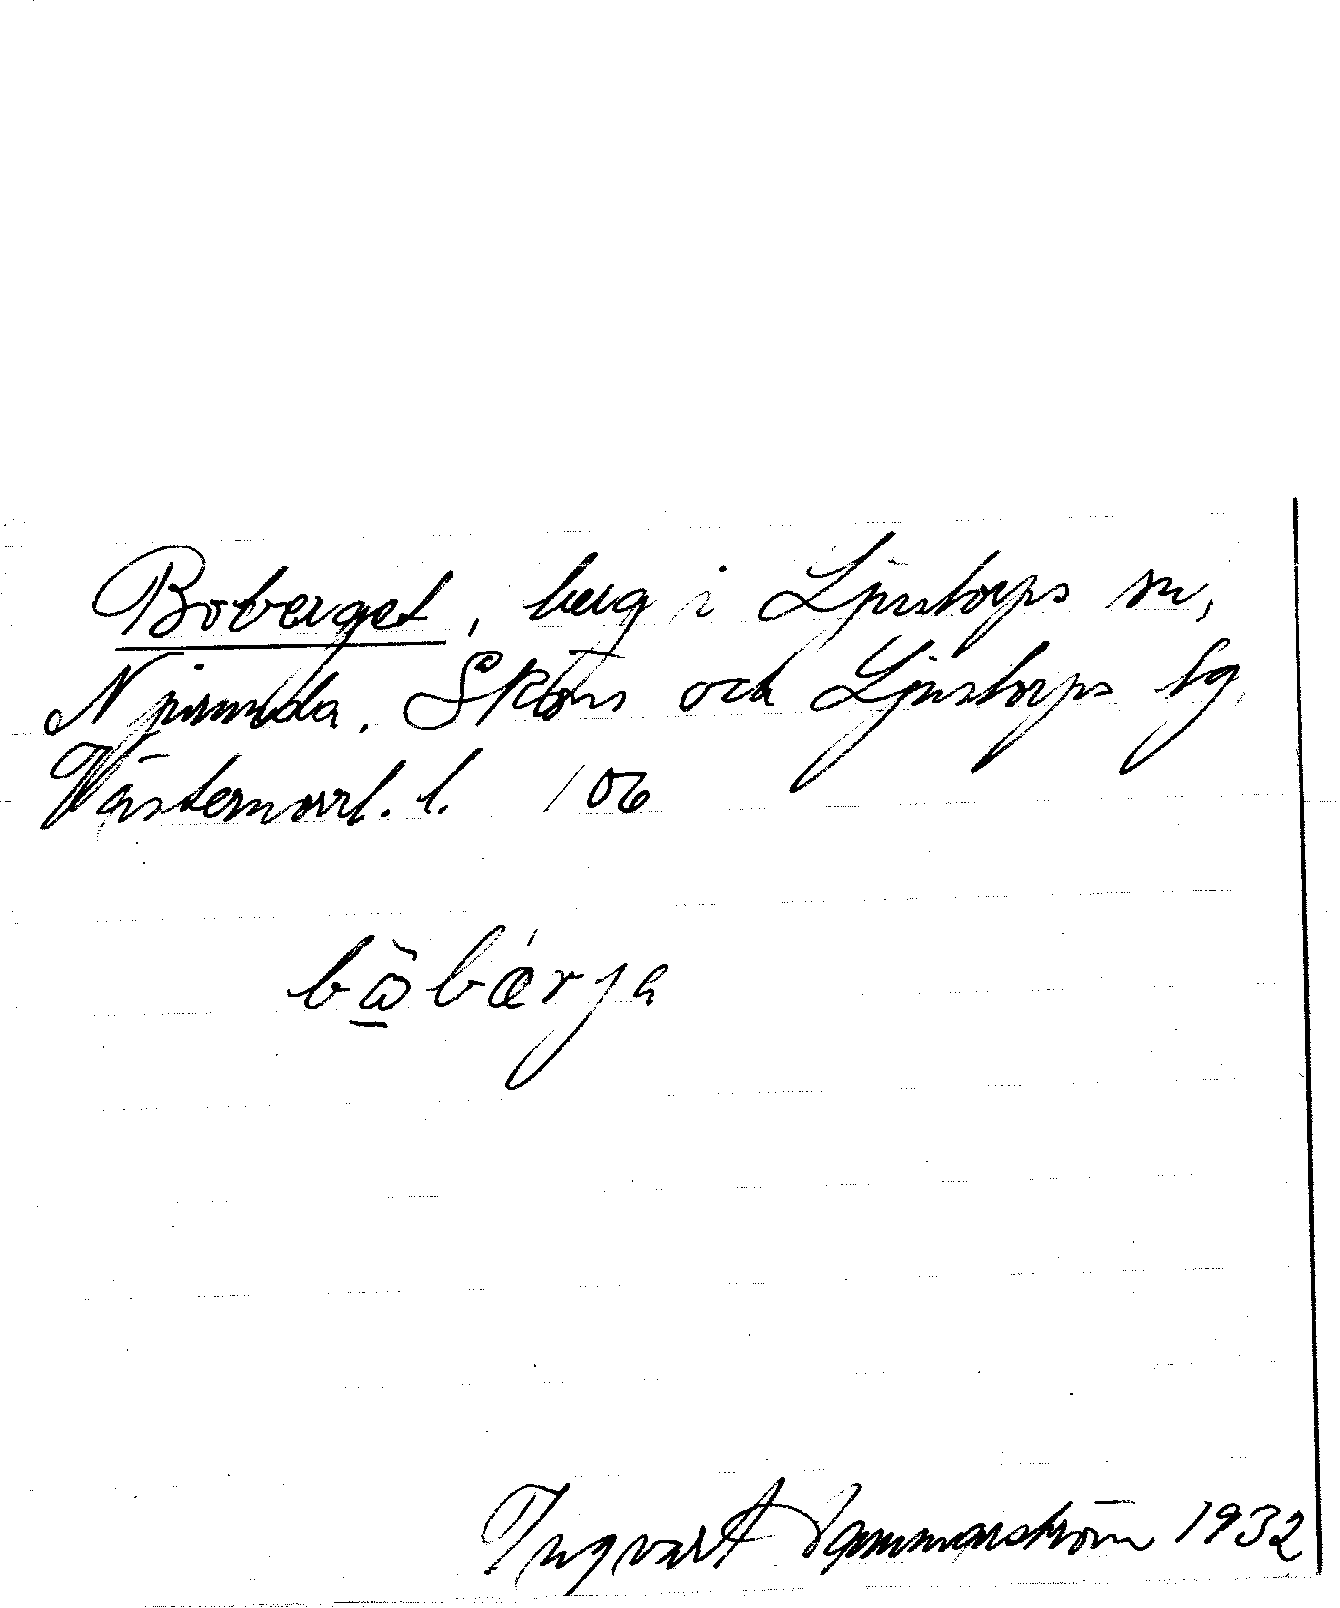 Boberget, berg i Ljustorps sn,
Njurunda, Sköns och Ljustorps tg,
Västernorrl. l. 106
bὼbǽrja
Ingvart Hammarström 1932